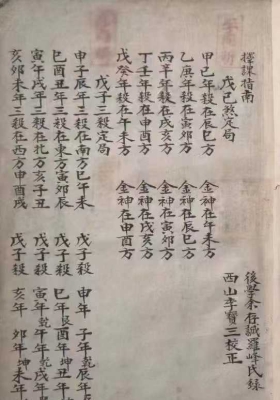 擇課指南
後學余存誠羅峰氏錄
西山李寶三校正
戊巳煞定局
甲巳年殺在辰巳方 金神在午未方
乙庚年殺在寅卯方 金神在辰巳方
丙辛年殺在戌亥方 金神在寅卯方
丁壬年殺在申酉方 金神在戌亥方
戊癸年殺在午未方 金神在申酉方
戊子三殺定局
申子辰年三殺在南方巳午未 戊子殺 申年 子年乾辰年
巳酉丑年三殺在東方寅卯辰 戊子殺 巳年 酉年坤丑
寅午戌年三殺在北方亥子丑 戊子殺 寅年乾午年 戌年
亥卯未年三殺在西方申酉戌 戊子殺 亥年 卯年坤未